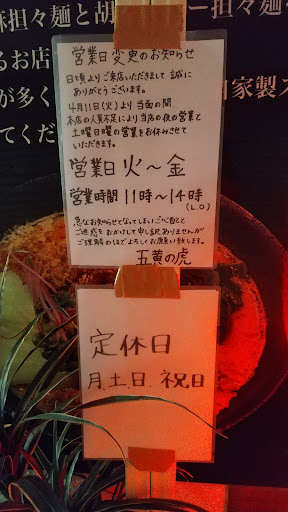 麻担々麺と胡
ー担々麺
るお店
が多く
自家製ス
てくだ
営業日変更のお知らせ
日頃よりご来店いただきまして誠に
ありがとうございます。
4月11日(火)より当面の間
本店の人員不足により当店の夜の営業と
土曜日曜の営業をお休みさせて
いただきます。
営業日 火〜金
営業時間 11時〜14時
(L.O)
急なお知らせとなってしまいご心配と
ご迷惑をおかけして申し訳ありませんが
ご理解のほどよろしくお願い致します。
五黄の虎
定休日
月.土.日.祝日